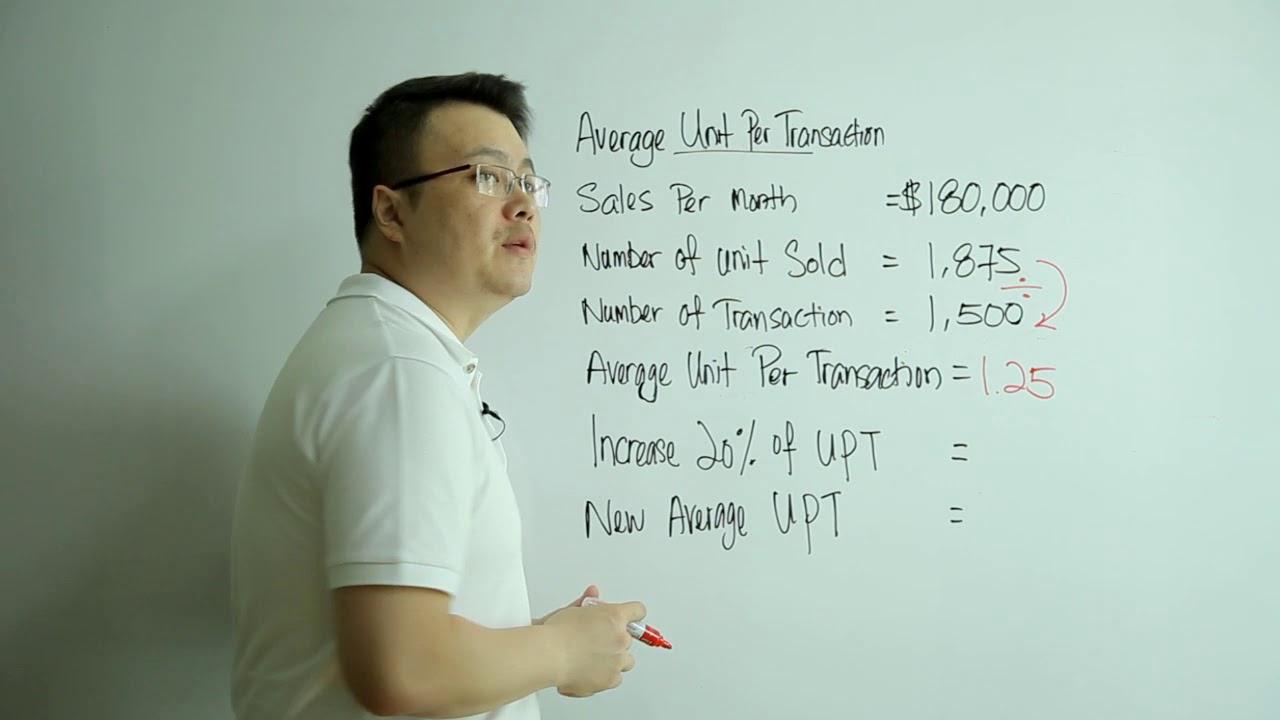 Average Unit Per Transaction
Sales Per Month = $180,000
Number of unit Sold = 1,875 ÷
Number of Transaction = 1,500
Average Unit Per Transaction = 1.25
Increase 20% of UPT =
New Average UPT =